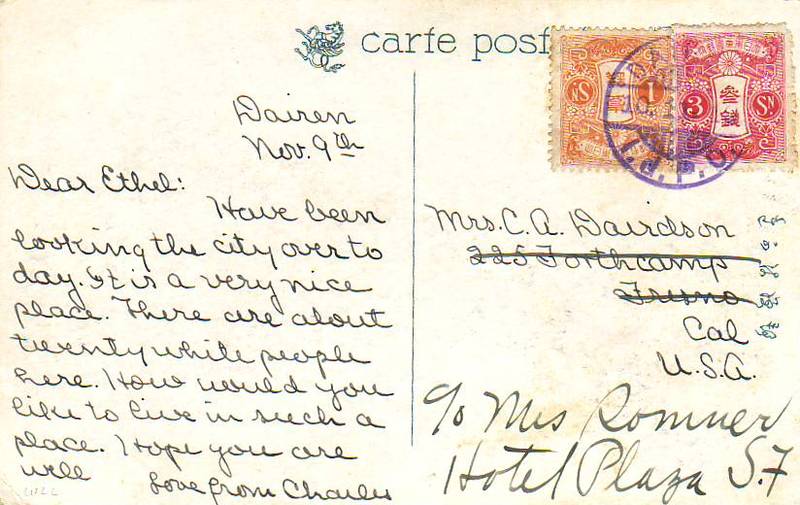 carte post
1 Sn
3 Sn
参
銭
I.J.P.O.
Dairen
Nov. 9th
Dear Ethel:
Have been
looking the city over to
day. It is a very nice
place. There are about
twenty white people
here. How would you
like to live in such a
place. Hope you are
well
Love from Charles
Mrs. C. A. Davidson
225 Forthcamp
Fresno
Cal
U.S.A.
c/o Mrs Romner
Hotel Plaza S.F